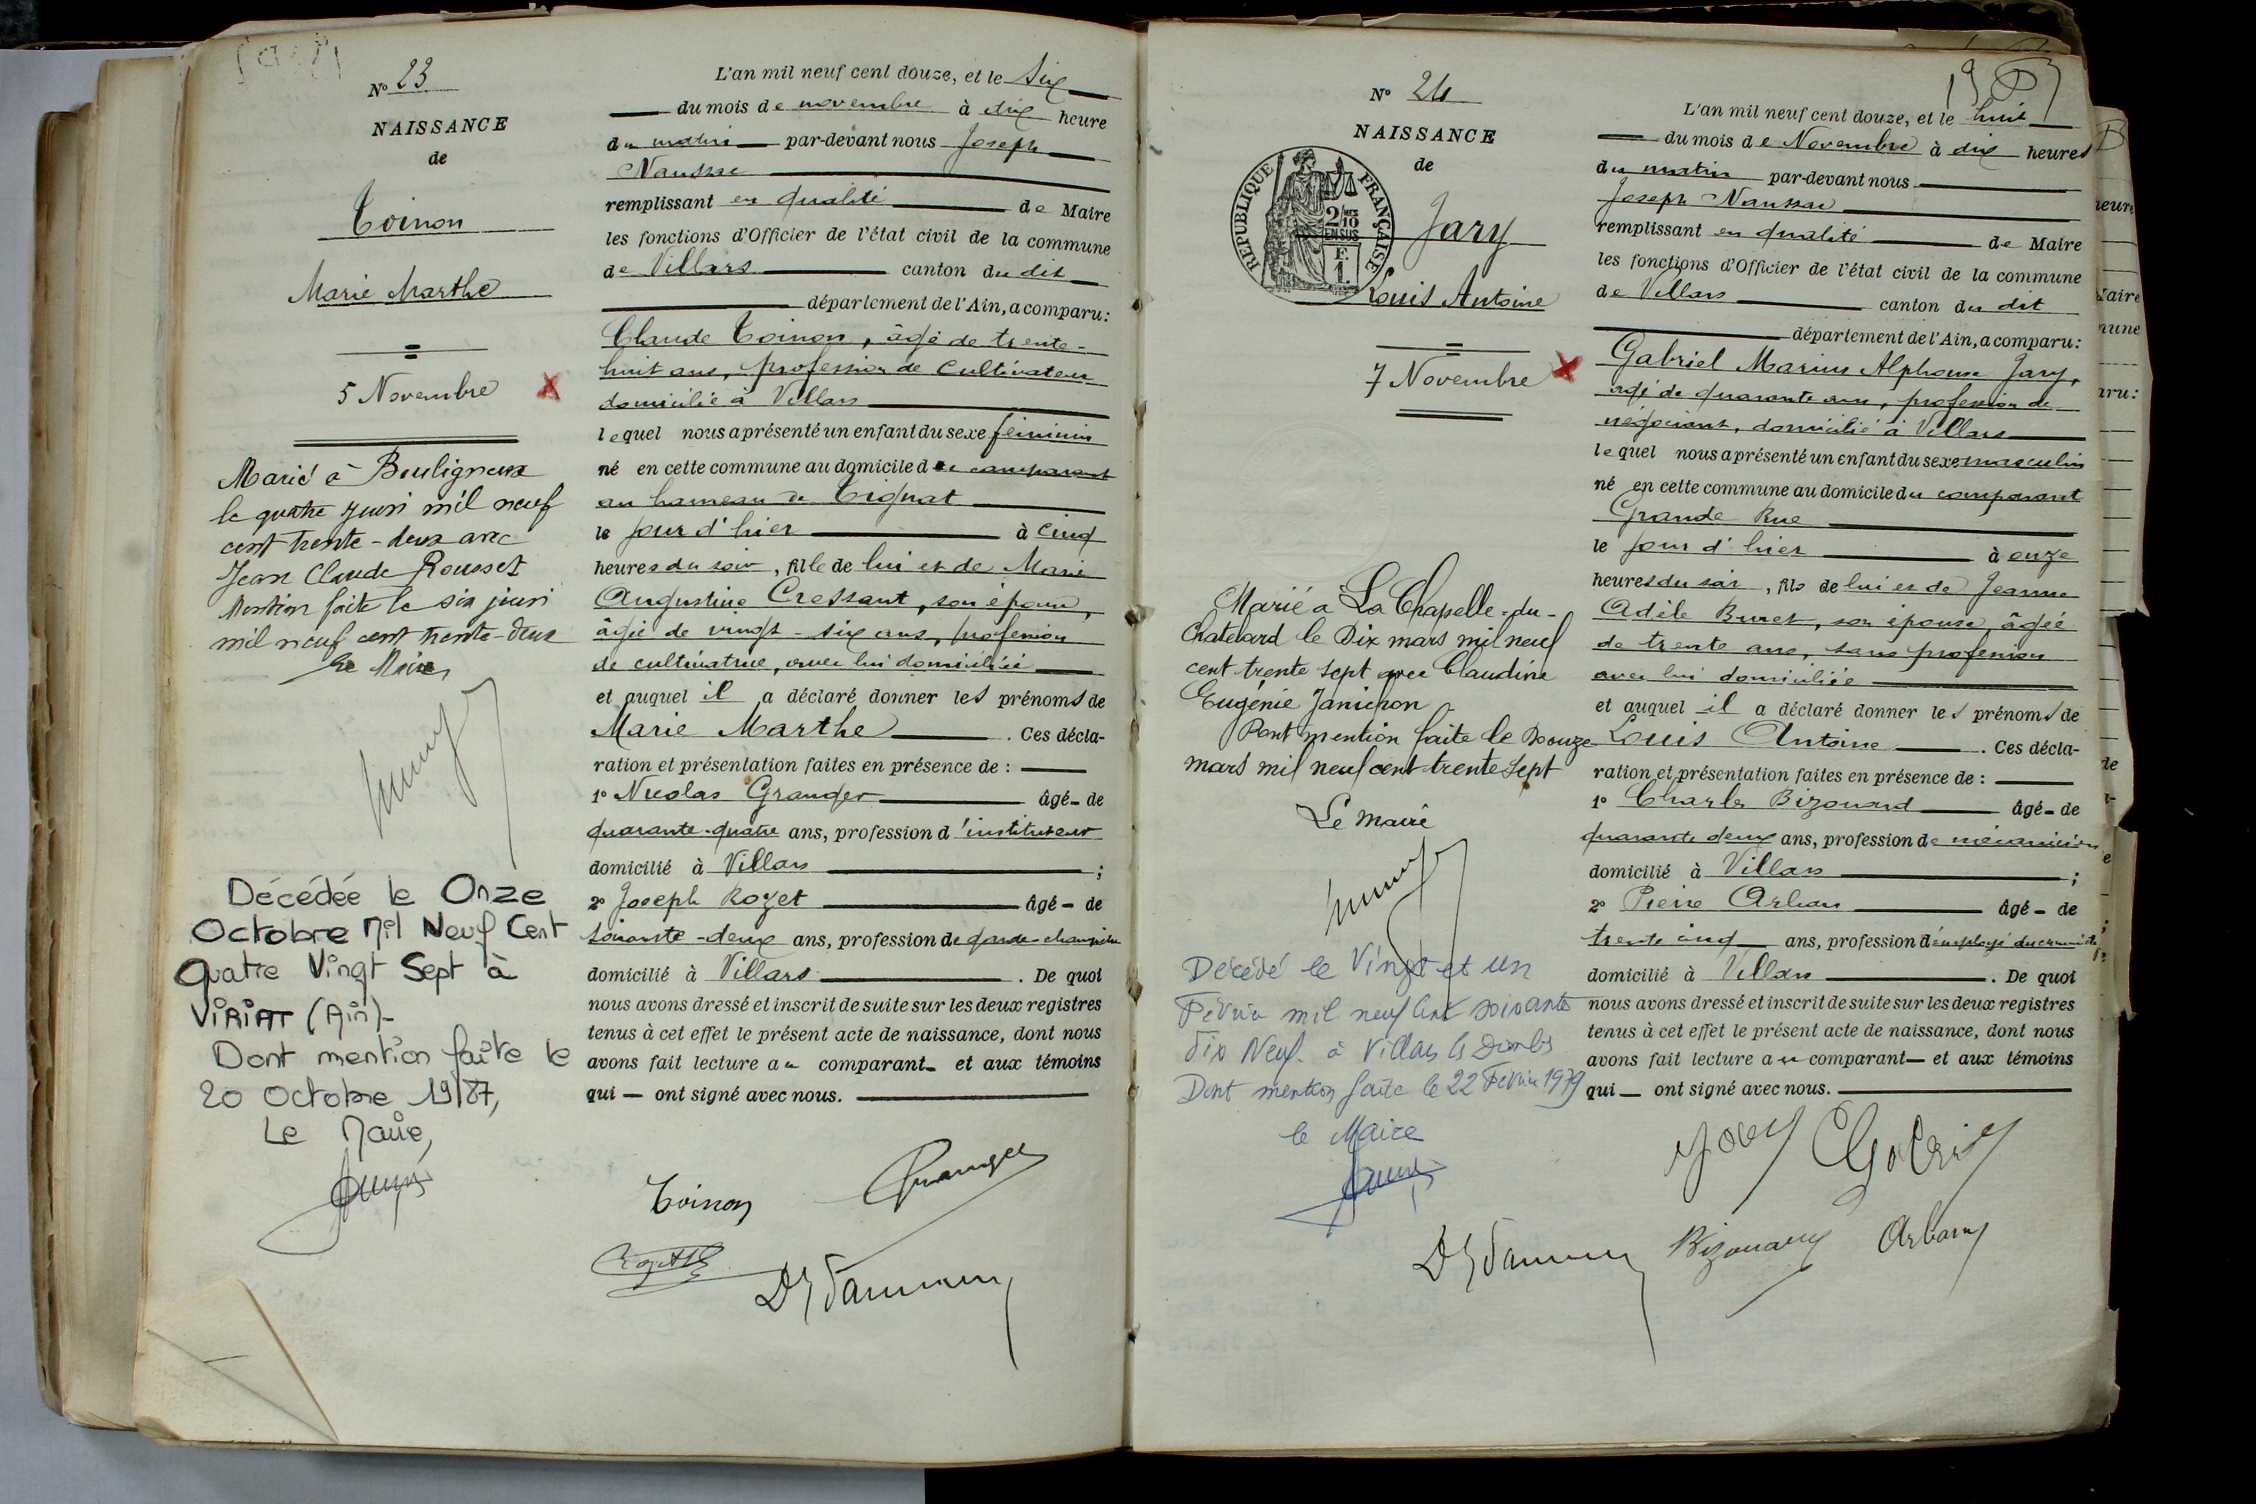 N° 23
NAISSANCE
de
Toinon
Marie Marthe
5 Novembre
Marié à Bouligneux
le quatre juin mil neuf
cent trente-deux avec
Jean Claude Rousset
Mention faite le six juin
mil neuf cent trente-deux
Le Maire
Décédée le Onze
Octobre Mil Neuf Cent
Quatre Vingt Sept à
VIRIAT (Ain)-
Dont mention faite le
20 octobre 1987,
Le Maire,
L'an mil neuf cent douze, et le six
du mois de novembre à dix heure
du matin par-devant nous Joseph
remplissant en qualité de Maire
les fonctions d'Officier de l'état civil de la commune
de Villars canton du dit
département de l'Ain, a comparu:
Claude Toinon, âgé de trente-
huit ans, profession de cultivateur
domicilié à Villars
lequel nous a présenté un enfant du sexe féminin
né en cette commune au domicile du comparant
au hameau de Tignat
le jour d'hier à cinq
heures du soir, fille de lui et de Marie
Augustine Cressant, son épouse,
âgée de vingt-six ans, profession
de cultivatrice, avec lui domiciliée
et auquel il a déclaré donner les prénoms de
Marie Marthe. Ces décla-
ration et présentation faites en présence de :
1° Nicolas Granger âgé de
quarante-quatre ans, profession d'instituteur
domicilié à Villars ;
2° Joseph Rozet âgé de
soixante-deux ans, profession de garde-champêtre
domicilié à Villars. De quoi
nous avons dressé et inscrit de suite sur les deux registres
tenus à cet effet le présent acte de naissance, dont nous
avons fait lecture au comparant et aux témoins
qui ont signé avec nous.
Toinon
Granger
N° 24
NAISSANCE
de
RÉPUBLIQUE FRANÇAISE
2/10
EN SUS
F.
1.
Jary
Louis Antoine
7 Novembre
Marié a La Chapelle-du-
Chatelard le Dix mars mil neuf
cent trente sept avec Claudine
Eugénie Janichon
Dont mention faite le Douze
mars mil neuf cent trente sept
Le maire
Décédé le Vingt et un
Février mil neuf cent soixante
Dix Neuf à Villars les Dombes
Dont mention faite le 22 Février 1979
le Maire
L'an mil neuf cent douze, et le huit
du mois de Novembre à dix heures
du matin par-devant nous
Joseph
remplissant en qualité de Maire
les fonctions d'Officier de l'état civil de la commune
de Villars canton du dit
département de l'Ain, a comparu:
Gabriel Marius Alphonse Jary,
âgé de quarante ans, profession de
négociant, domicilié à Villars
lequel nous a présenté un enfant du sexe masculin
né en cette commune au domicile du comparant
Grande Rue
le jour d'hier à onze
heures du soir, fils de lui et de Jeanne
Adèle Buret, son épouse, âgée
de trente ans, sans profession
avec lui domiciliée
et auquel il a déclaré donner les prénoms de
Louis Antoine. Ces décla-
ration et présentation faites en présence de :
1° Charles Bizouard âgé de
quarante deux ans, profession de mécanicien
domicilié à Villars ;
2° Pierre Arban âgé de
trente cinq ans, profession d'employé du chemin de
domicilié à Villars. De quoi
nous avons dressé et inscrit de suite sur les deux registres
tenus à cet effet le présent acte de naissance, dont nous
avons fait lecture au comparant et aux témoins
qui ont signé avec nous.
Jary Gabriel
Bizouard
Arban